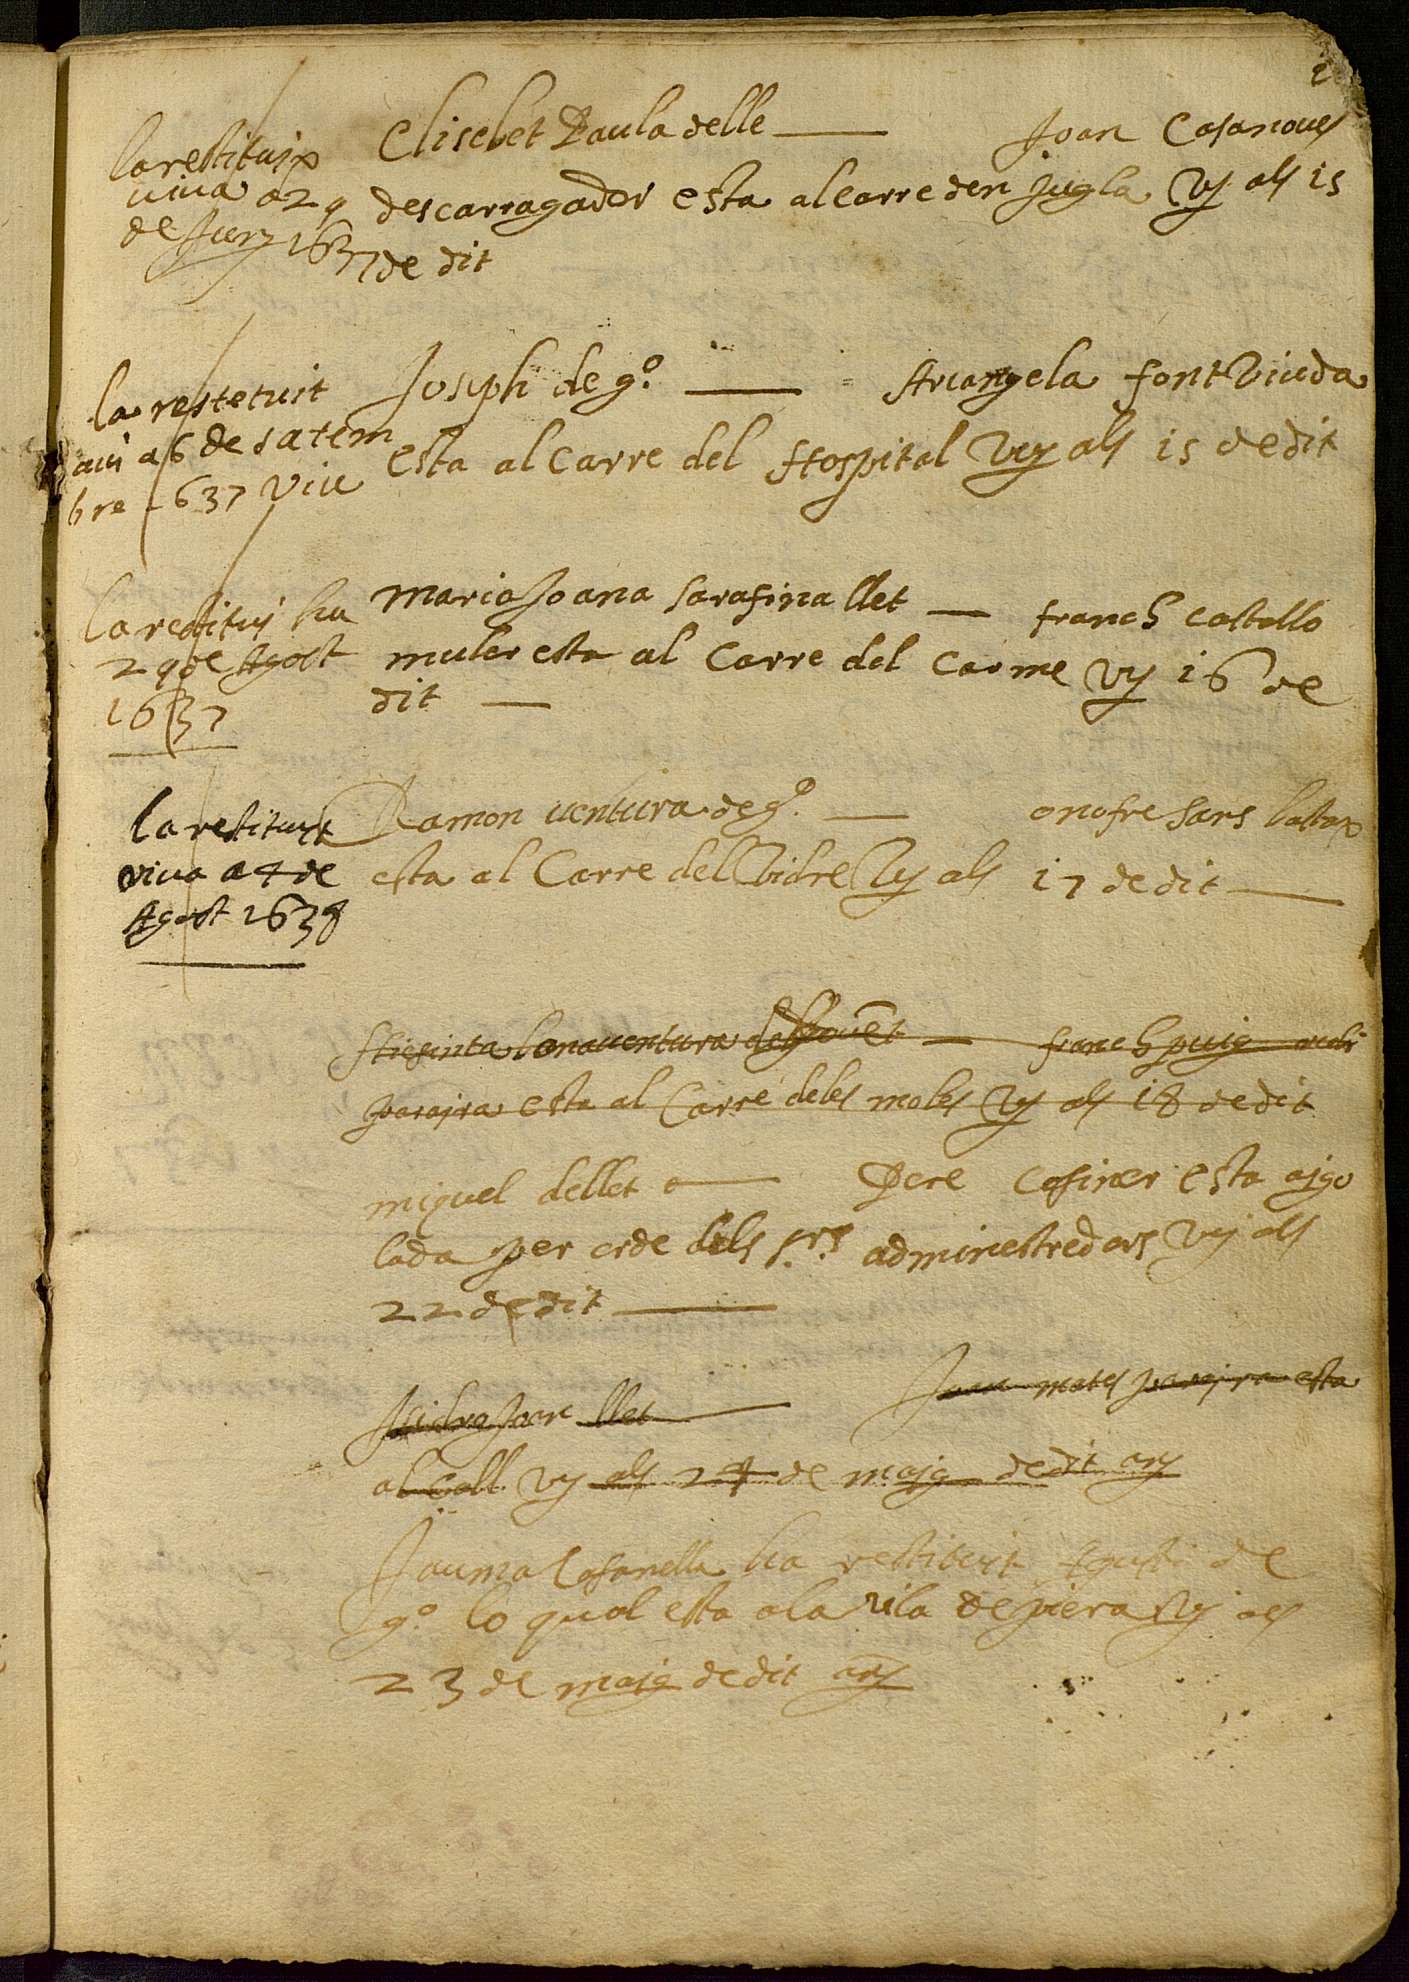 2
la restituix
viva a 29
de Juny 1637
Elisebet Paula de lle — Joan Casanoves
descarragador esta al carre den Jugla vy als 15
de dit
la restetuit
aui a 6 de satem
bre 1637 viu
Joseph de gº. — Arcangela font Viuda
esta al Carre del Hospital vuy als 15 de dit
la restitui ha
29 de Agost
1637
maria Joana sarafina llet — franch castello
muler esta al Carre del Carme vy 16 de
dit —
la restituit
viva a 4 de
Agost 1638
Ramon ventura de gº. — onofre sars bastax
esta al Carre del Vidre Vy als 17 de dit —
Hiesinta bonaventura — franch puig
parayra esta al Carre deles moles Vy als 18 de dit
miquel de llet — Pere Cosiner esta aygo
lada per orde dels s.rs administredors vy als
22 de dit —
Isidro Joan llet — Joan mates parayra esta
al Coll vy als 24 de maig de dit any
Jauma Casanella ha restituit Agusti de
gº lo qual esta a la vila de piera Vy als
23 de maig de dit any